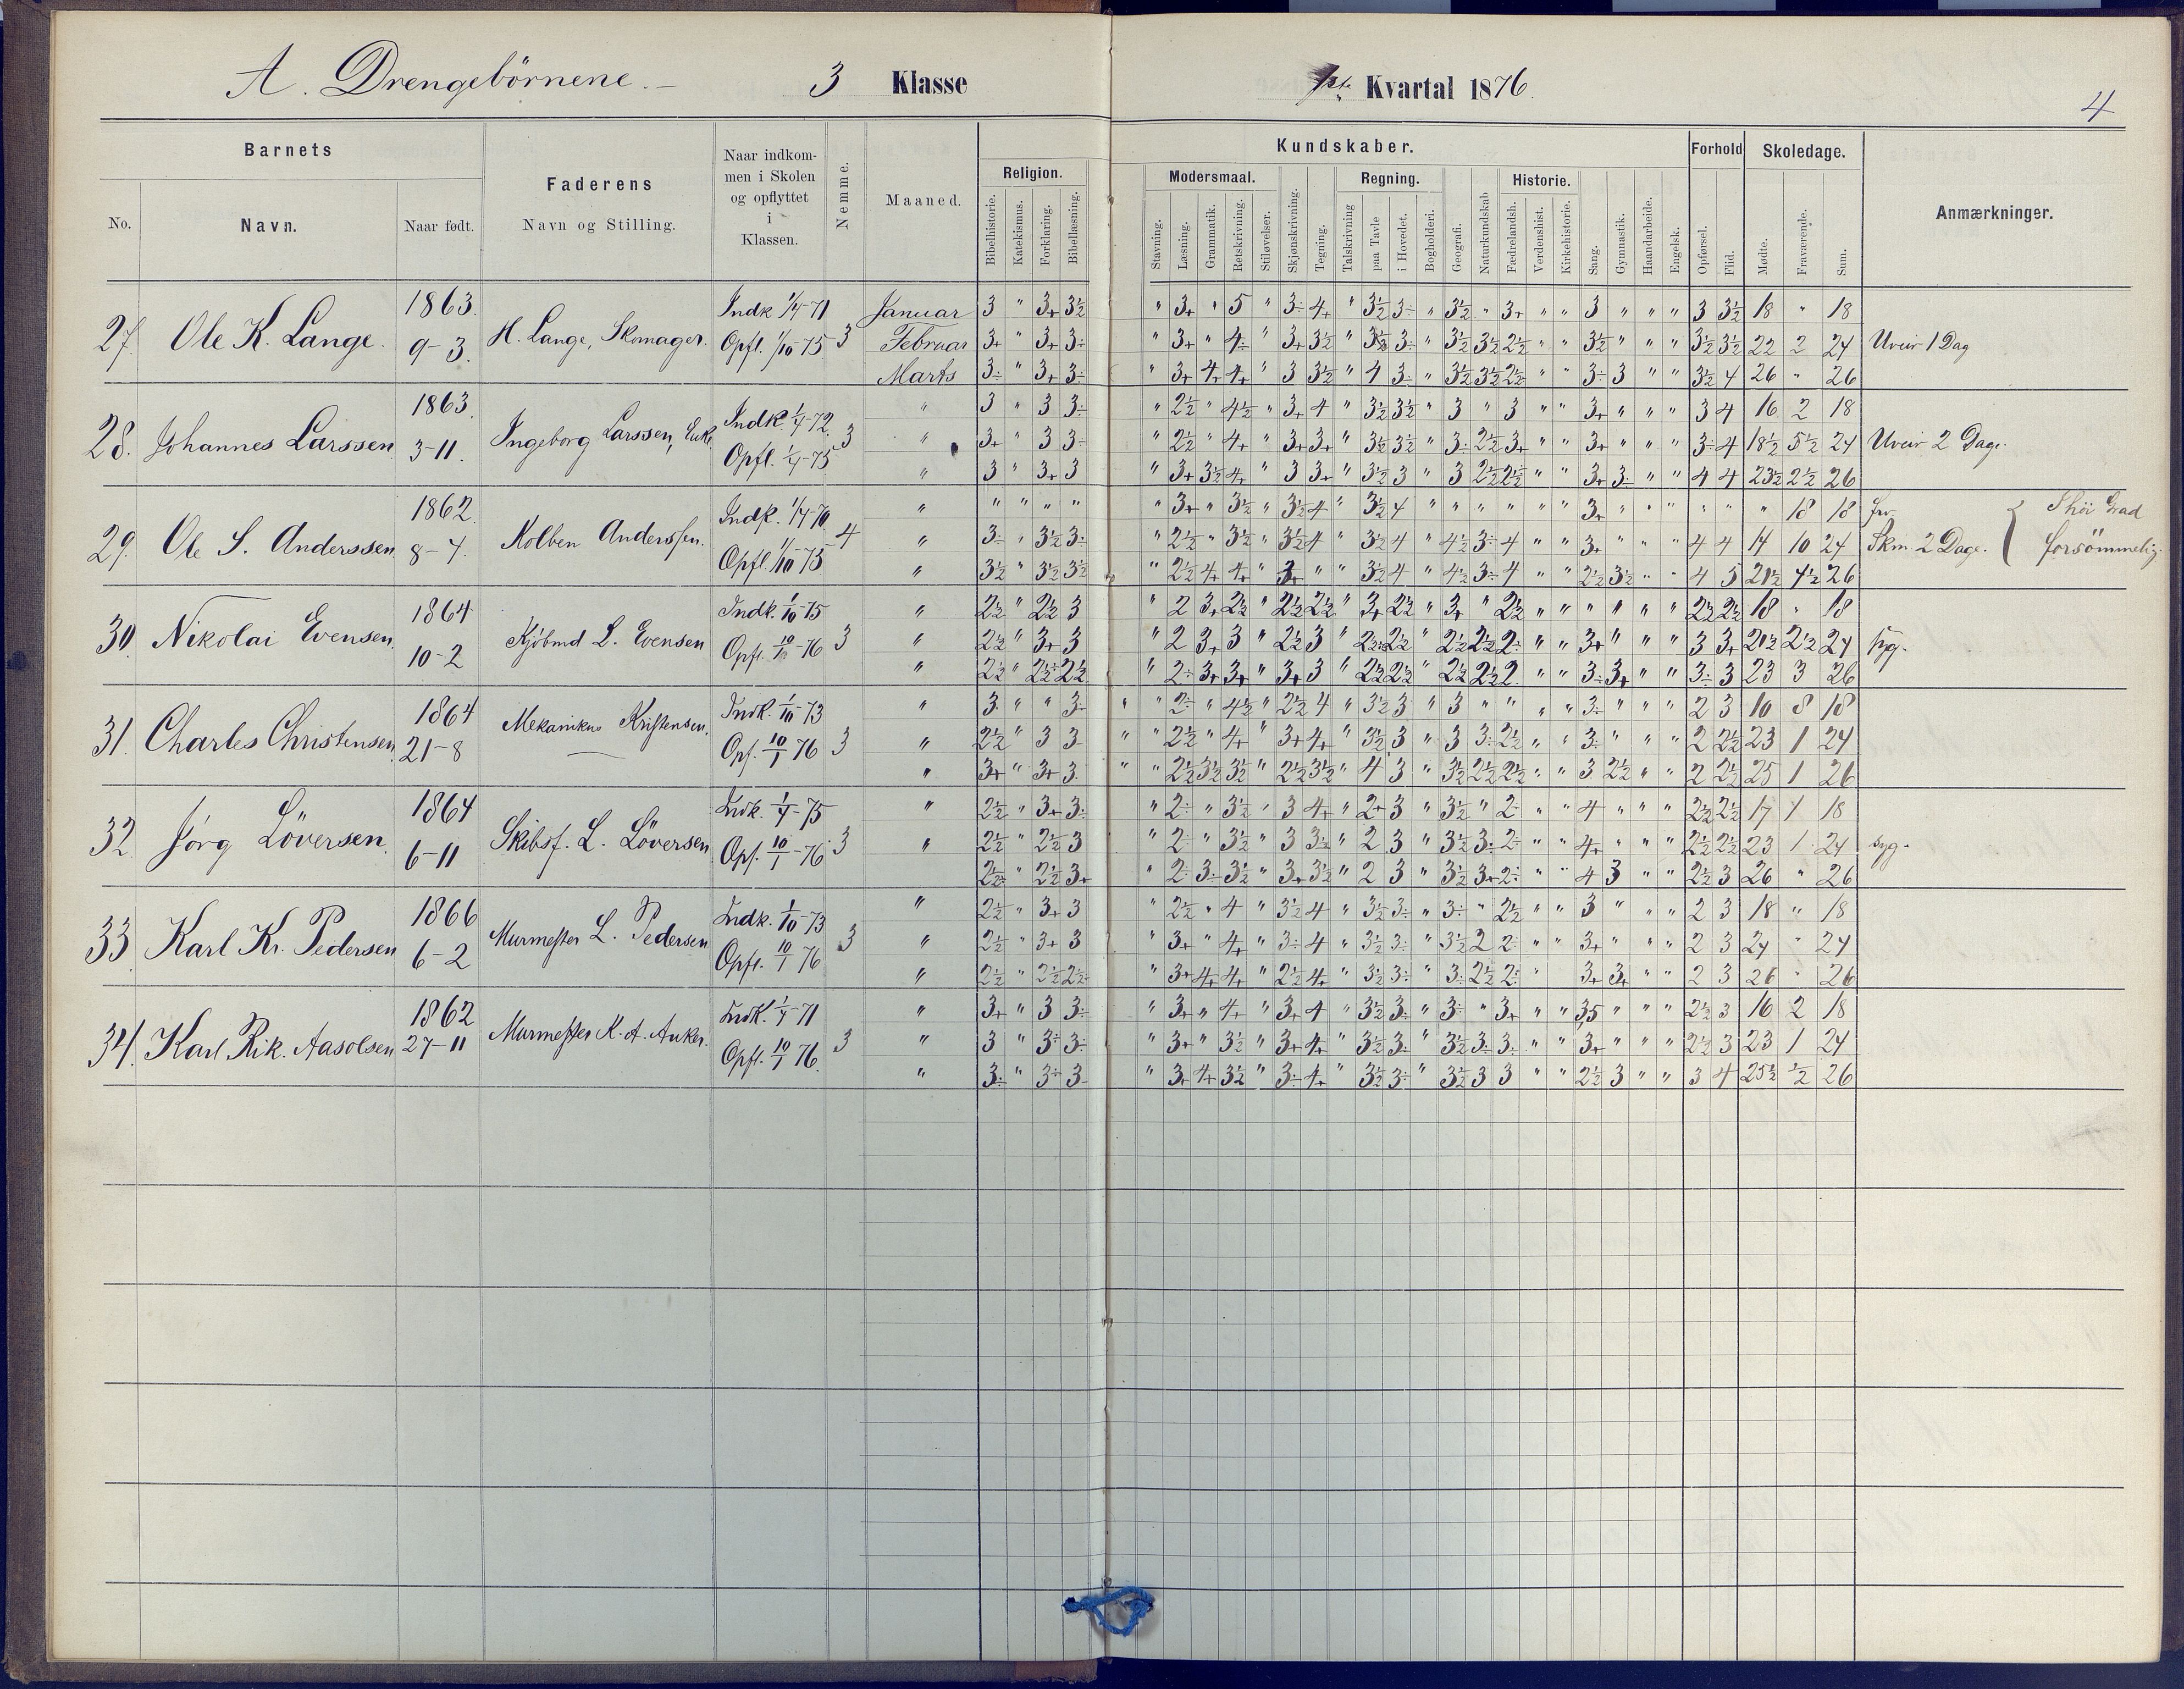 A. Drengebörnene. –
3 Klasse
1ste Kvartal 1876.
4
Barnets
No.
Navn.
Naar født.
Faderens
Navn og Stilling.
Naar indkom-
men i Skolen
og opflyttet
i
Klassen.
Nemme.
Maaned.
Kundskaber.
Religion.
Bibelhistorie.
Katekismus.
Forklaring.
Bibellæsning.
Modersmaal.
Stavning.
Læsning.
Grammatik.
Retskrivning.
Stiløvelser.
Skjønskrivning.
Tegning.
Regning.
Talskrivning
paa Tavle
i Hovedet.
Bogholderi.
Geografi.
Naturkundskab
Historie.
Fædrelandsh.
Verdenshist.
Kirkehistorie.
Sang.
Gymnastik.
Haandarbeide.
Engelsk.
Forhold
Opførsel.
Flid.
Skoledage.
Mødte.
Fraværende.
Sum.
Anmærkninger.
27. Ole K. Lange. 1863. 9-3. H. Lange, Skomager. Indk 1/4-71 Opfl. 1/10-75 3
Januar 3 " 3+ 3½ " 3+ " 5 " 3÷ 4+ " 3½ 3÷ " 3½ " 3+ " " 3 " " " 3 3½ 18 " 18
Februar 3+ " 3+ 3÷ " 3+ " 4÷ " 3+ 3½ " 3½ 3÷ " 3½ 3½ 2½ " " 3½ " " " 3½ 3½ 22 2 24 Uveir 1 Dag
Marts 3÷ " 3+ 3÷ " 3+ 4+ 4+ " 3 3½ " 4 3÷ " 3½ 3½ 2½ " " 3÷ 3 " " 3½ 4 26 " 26
28. Johannes Larssen 1863. 3-11. Ingeborg Larssen, Enke Indk. 1/4-72. Opfl. 1/4-75 3
" 3 " 3 3÷ " 2½ " 4½ " 3+ 4 " 3½ 3½ " 3 " 3 " " 3+ " " " 3 4 16 2 18
" 3+ " 3 3÷ " 2½ " 4+ " 3+ 3+ " 3½ 3½ " 3÷ 2½ 3+ " " 3+ " " " 3÷ 4 18½ 5½ 24 Uveir 2 Dage.
" 3 " 3+ 3 " 3+ 3½ 4+ " 3 3+ " 3½ 3 " 3 2½ 2½ " " 3+ 3÷ " " 4 4 23½ 2½ 26
29. Ole S. Anderssen. 1862. 8-4. Kolben Anderssen. Indk. 1/4-70 Opfl. 1/10-75 4
" " " " " " 3+ " 3½ " 3½ 4 " 3½ 4 " " " " " " 3+ " " " " " " 18 18 frv.
" 3÷ " 3½ 3÷ " 2½ " 3½ " 3½ 4 " 3½ 4 " 4½ 3÷ 4 " " 3+ " " " 4 4 14 10 24 Skm. 2 Dage. { I höi Grad forsömmelig.
" 3½ " 3½ 3½ " 2½ 4+ 4+ " 3+ " " 3½ 4 " 4½ 3÷ 4 " " 2½ 3½ " " 4 5 21½ 4½ 26
30. Nikolai Evensen. 1864 10-2 Kjöbmd L. Evensen Indk. 1/10-75 Opfl. 10/1-76 3
" 2½ " 2½ 3 " 2 3+ 2½ " 2½ 2½ " 3+ 2½ " 3+ " 2½ " " " " " " 2½ 2½ 18 " 18
" 2½ " 3+ 3 " 2 3+ 3 " 2½ 3 " 2½ 2½ " 2½ 2½ 2÷ " " 3+ " " " 3 3+ 21½ 2½ 24 syg.
" 2½ " 2½ 2½ " 2÷ 3+ 3+ " 3+ 3 " 2½ 2½ " 2½ 2½ 2 " " 3÷ 3+ " " 3÷ 3 23 3 26
31. Charles Christensen. 1864 21-8 Mekanikus Kristensen. Indk. 1/10-73 Opf. 10/1 76 3
" 3 " " 3÷ " 2÷ " 4½ " 2½ 4 " 3½ 3 " 3 " " " " 3÷ " " " 2 3 10 8 18
" 2½ " 3 3 " 2½ " 4+ " 3+ 4+ " 3½ 3 " 3 3÷ 2½ " " 3÷ " " " 2 2½ 23 1 24
" 3+ " 3+ 3 " 2½ 3½ 3½ " 2½ 3½ " 4 3 " 3½ 2½ 2½ " " 3 2½ " " 2 2½ 25 1 26
32 Jörg Löversen. 1864 6-11 Skibsf. L. Löversen Indk. 1/4-75 Opf. 10/1-76 3
" 2½ " 3+ 3÷ " 2÷ " 3½ " 3 4+ " 2+ 3 " 3½ " 2÷ " " 4 " " " 2½ 2½ 17 1 18
" 2½ " 2½ 3 " 2÷ " 3½ " 3 3½ " 2 3 " 3½ 3÷ 2÷ " " 4+ " " " 2½ 2½ 23 1 24 syg.
2½ " 2½ 3+ " 2÷ 3÷ 3½ " 3+ 3½ " 2 3 " 3½ 3+ 2÷ " " 4 3 " " 2½ 3 26 " 26
33 Karl Kr. Pedersen 1866 6-2 Murmester L. Pedersen Indk. 1/10-73 Opfl. 10/1 76 3
" 2½ " 3+ 3 " 2½ " 4 " 3½ 4 " 3½ 3÷ " 3÷ " 2½ " " 3 " " " 2 3 18 " 18
" 2½ " 3+ 3 " 3+ " 4+ " 3÷ 4 " 3½ 3÷ " 3½ 2 2÷ " " 3+ " " " 2 3 24 " 24
" 2½ " 2½ 2½ " 3+ 4+ 4+ " 2½ 4+ " 3½ 3÷ " 3÷ 2½ 2÷ " 3+ 3+ " " 2 3 26 " 26
34. Karl Rik. Aasolsen 1862 27-11 Murmester K. A. Anker. Indk. 1/4-71 Opfl. 10/1 76. 3
" 3+ " 3 3÷ " 3+ " 4+ " 3+ 4 " 3½ 3÷ " 3÷ " 3+ " " 3,5 " " " 2½ 3 16 2 18
" 3 " 3÷ 3÷ " 3+ " 3½ " 3+ 4+ " 3½ 3÷ " 3½ 3÷ 3÷ " " 3+ " " " 2½ 3 23 1 24
" 3÷ " 3÷ 3 " 3+ 4+ 3½ " 3÷ 4+ " 3½ 3÷ " 3½ 3 3 " " 2½ 3 " " 3 4 25½ ½ 26